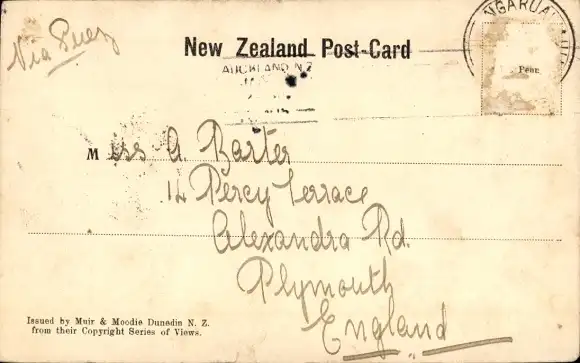 Via Suez
New Zealand Post-Card
NGARUA
AUCKLAND N.Z
Penn
Miss A. Barter
14 Percy Terrace
Alexandra Rd.
Plymouth
England
Issued by Muir & Moodie Dunedin N. Z.
from their Copyright Series of Views.